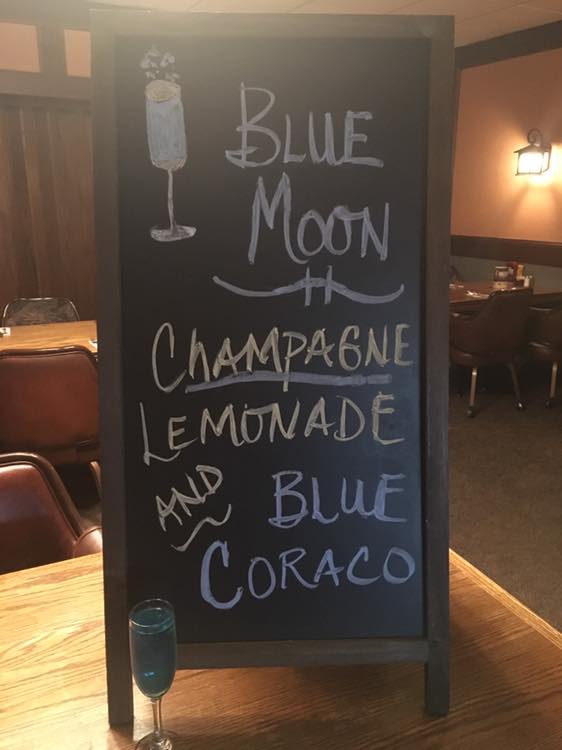 BLUE
MOON
CHAMPAGNE
LEMONADE
AND BLUE
CORACO